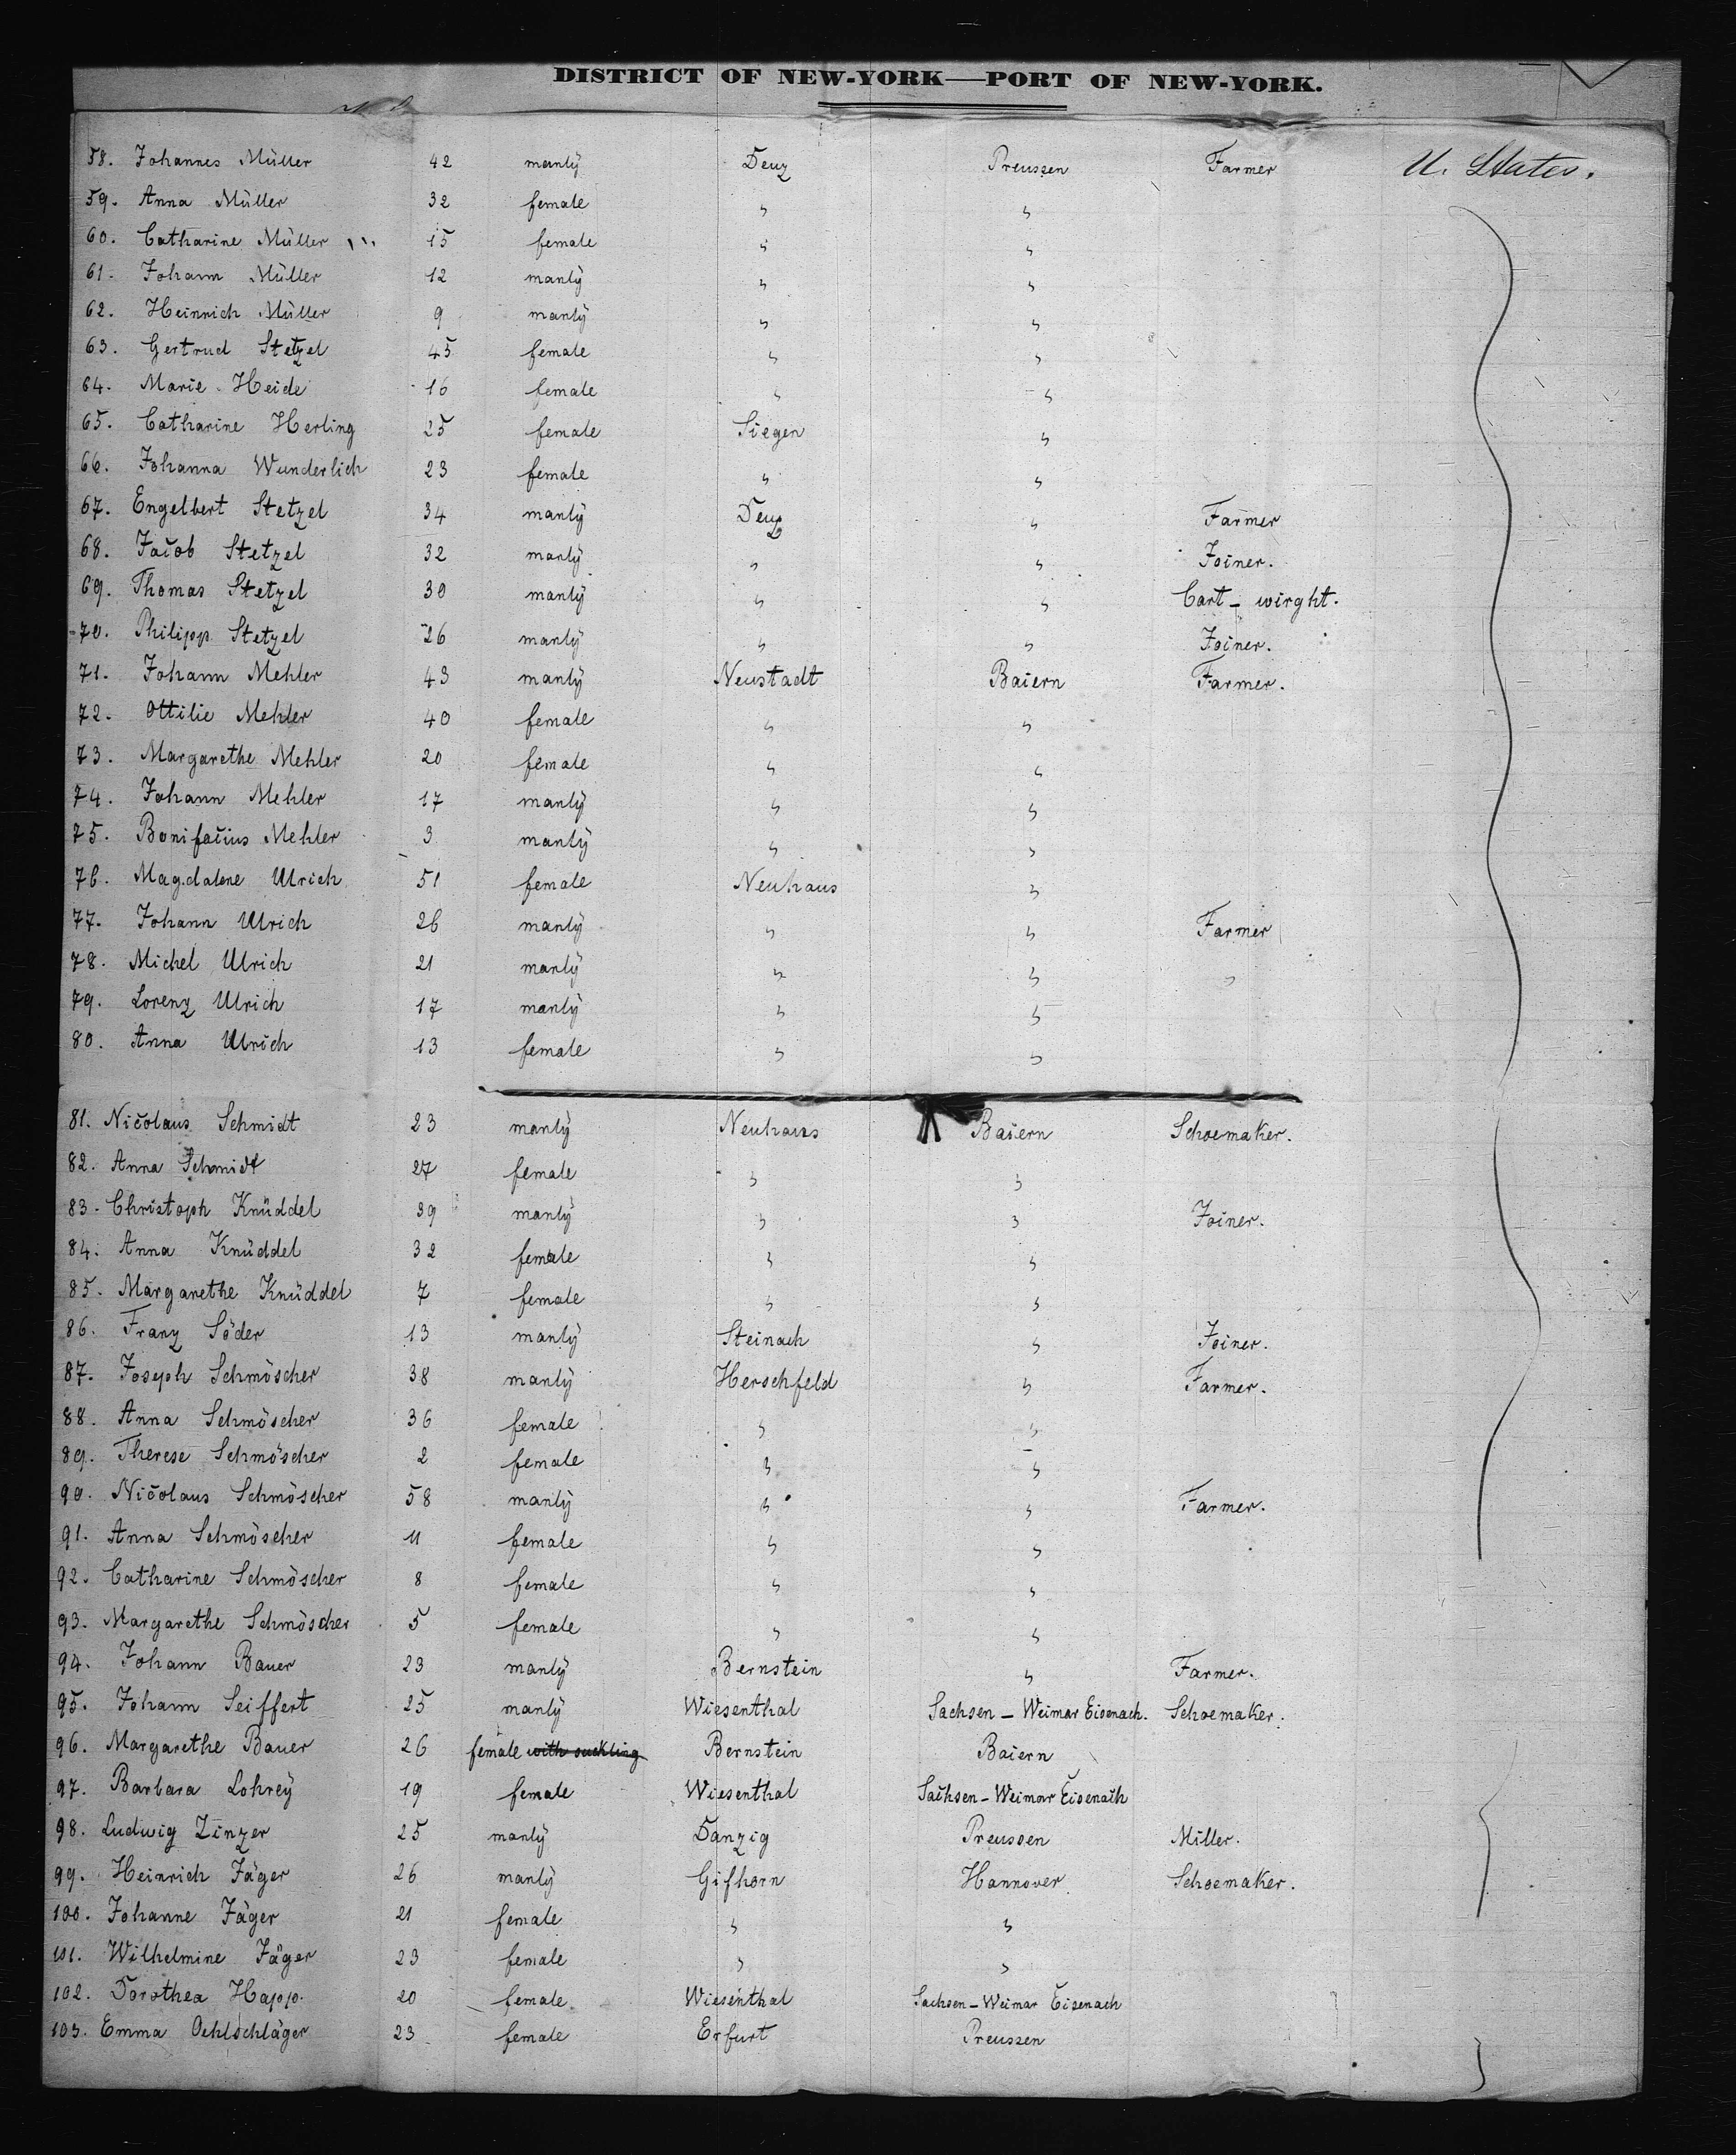 DISTRICT OF NEW-YORK—PORT OF NEW-YORK.
58. Johannes Müller 42 manly Deuz Preussen Farmer U. States.
59. Anna Müller 32 female " "
60. Catharine Müller 15 female " "
61. Johann Müller 12 manly " "
62. Heinrich Müller 9 manly " "
63. Gertrud Stetzel 45 female " "
64. Marie Heide 16 female " "
65. Catharine Herling 25 female Siegen "
66. Johanna Wunderlich 23 female " "
67. Engelbert Stetzel 34 manly Deuz " Farmer
68. Jacob Stetzel 32 manly " " Joiner.
69. Thomas Stetzel 30 manly " " Cart-wirght.
70. Philipp Stetzel 26 manly " " Joiner.
71. Johann Mehler 43 manly Neustadt Baiern Farmer.
72. Ottilie Mehler 40 female " "
73. Margarethe Mehler 20 female " "
74. Johann Mehler 17 manly " "
75. Bonifacius Mehler 3 manly " "
76. Magdalene Ulrich 51 female Neuhaus "
77. Johann Ulrich 26 manly " " Farmer
78. Michel Ulrich 21 manly " " "
79. Lorenz Ulrich 17 manly " "
80. Anna Ulrich 13 female " "
81. Nicolaus Schmidt 23 manly Neuhaus Baiern Schoemaker.
82. Anna Schmidt 27 female " "
83. Christoph Knüddel 39 manly " " Joiner.
84. Anna Knüddel 32 female " "
85. Margarethe Knüddel 7 female " "
86. Franz Söder 13 manly Steinach " Joiner.
87. Joseph Schmöscher 38 manly Herschfeld " Farmer.
88. Anna Schmöscher 36 female " "
89. Therese Schmöscher 2 female " "
90. Nicolaus Schmöscher 58 manly " " Farmer.
91. Anna Schmöscher 11 female " "
92. Catharine Schmöscher 8 female " "
93. Margarethe Schmöscher 5 female " "
94. Johann Bauer 23 manly Bernstein " Farmer.
95. Johann Seiffert 25 manly Wiesenthal Sachsen-Weimar Eisenach. Schoemaker.
96. Margarethe Bauer 26 female with suckling Bernstein Baiern
97. Barbara Lohrey 19 female Wiesenthal Sachsen-Weimar Eisenach
98. Ludwig Zinzer 25 manly Danzig Preussen Miller.
99. Heinrich Jäger 26 manly Gifhorn Hannover Schoemaker.
100. Johanne Jäger 21 female " "
101. Wilhelmine Jäger 23 female " "
102. Dorothea Happ. 20 female. Wiesenthal Sachsen-Weimar Eisenach
103. Emma Oehlschläger 23 female Erfurt Preussen